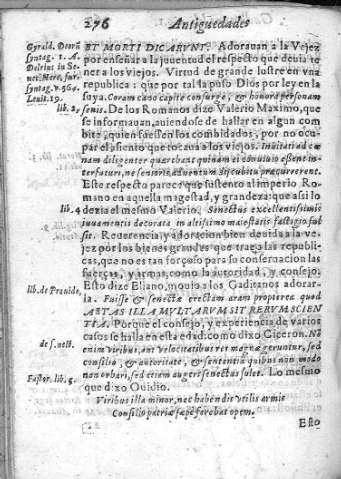 276 Antiguedades
Gyrald. Deorū
Syntag. 1. A.
Delrius in Se-
Syntag. v. 564.
Leuit. 19.
lib. 2,
lib. 4
de senect.
Fastor. lib. 5.
ET MORTI DICARVNT. Adorauan a la Vejez
por enseñar a la juventud el respecto que deuia te
ner a los viejos. Virtud de grande lustre en vna
republica: que por tal la puso Dios por ley en la
suya. Coram cano capite consurge, & honora personam
senis. De los Romanos dize Valerio Maximo, que
se informauan, auiendose de hallar en algun com
bite, quien fuessen los combidados, por no ocu
par el asiento que tocaua a los viejos. Inuitati ad cœ
nam diligenter quærebant quinam ei conuiuio essent in-
terfuturi, ne senioris aduentum discubitu præcurrerent.
Este respecto parece que sustento al imperio Ro-
mano en aquella magestad, y grandeza: que assi lo
dezia el mesmo Valerio. Senectus excellentissimis
iuuamentis decorata in altissimo maiestatis fastigio fuis
set. Reuerencia, y adoracion bien deuida a la ve-
jez por los bienes grandes que trae a las republi-
cas, que no es tan forçoso para su conseruacion las
fuerças, y armas, como la autoridad, y consejo.
Esto dize Eliano, mouio a los Gaditanos adorar-
la. Fuisse & senectæ erectam aram propterea quod
AETAS ILLA MVLTARVM SIT RERVM SCIEN
TIA. Porque el consejo, y experiencia de varios
casos se halla en esta edad: como dixo Ciceron. Nō
enim viribus, aut velocitatibus magnæ reruntur, sed
consilio, & autoritate, & sententia quibus non modo
non orbari, sed etiam augeri senectus solet. Lo mesmo
que dixo Ouidio.
Viribus illa minor, nec habendis vtilis armis
Consilio patriæ sæpe ferebat opem.
Esto